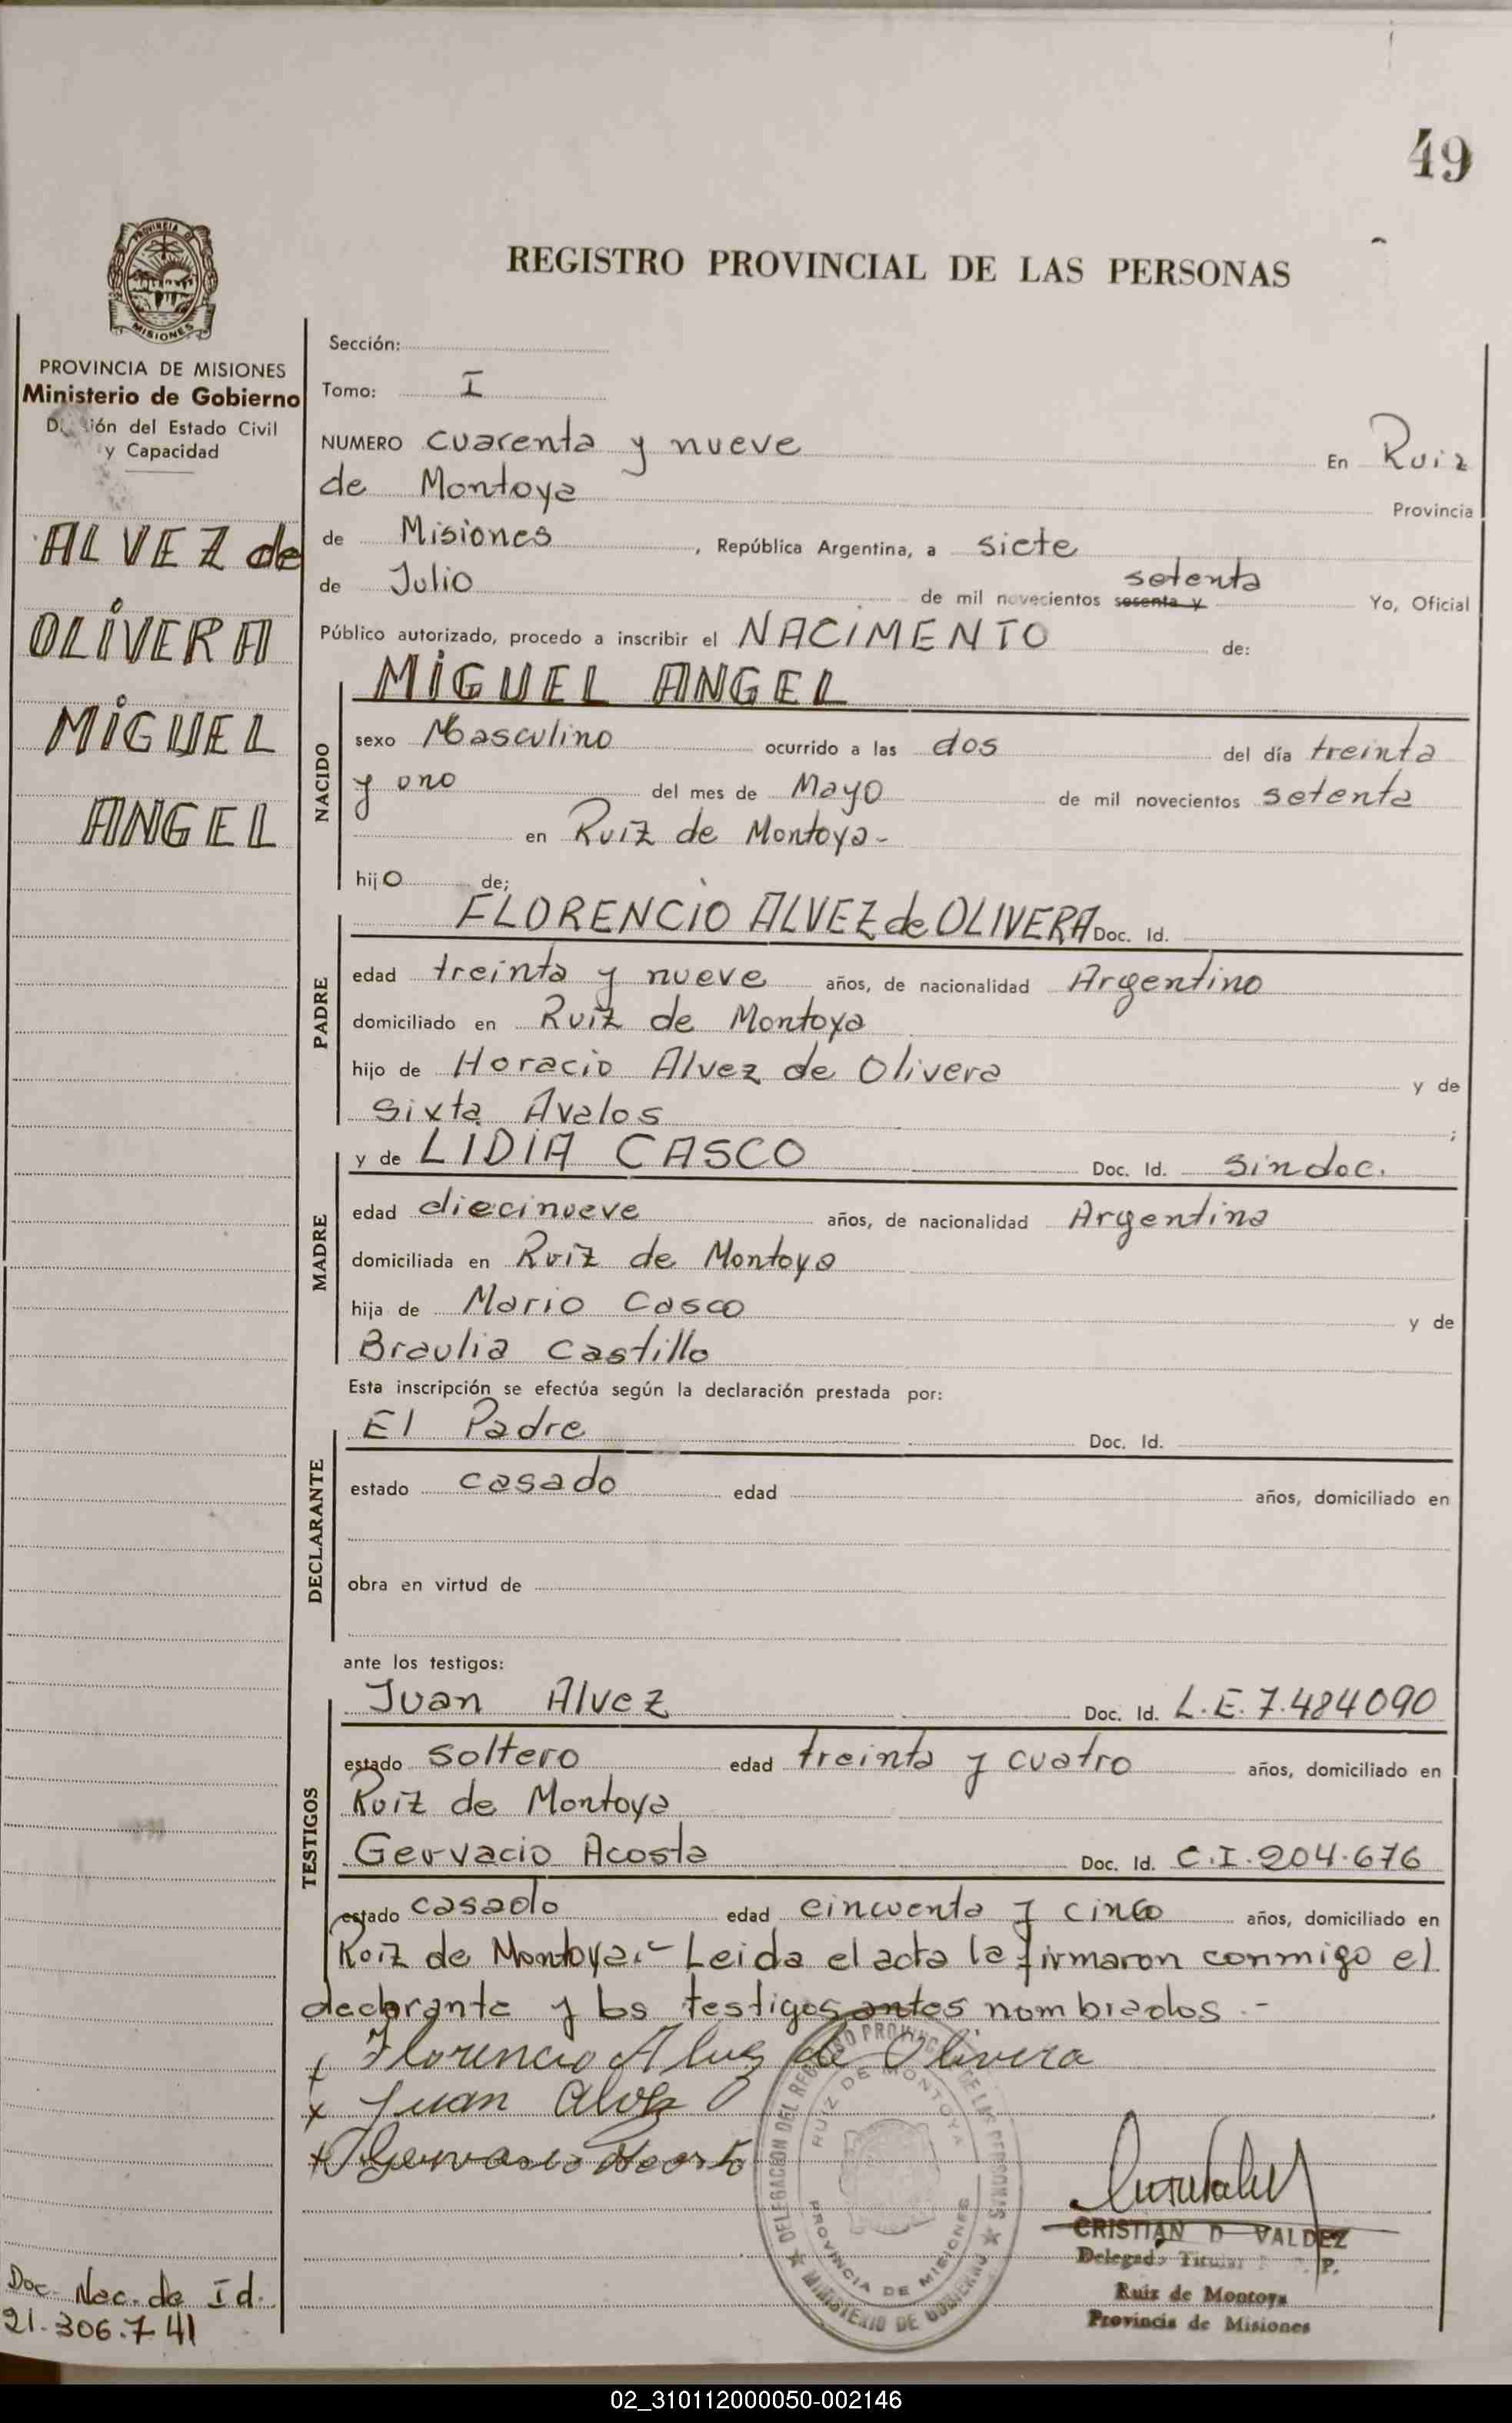 49
PROVINCIA DE
MISIONES
REGISTRO PROVINCIAL DE LAS PERSONAS
PROVINCIA DE MISIONES
Ministerio de Gobierno
ión del Estado Civil
y Capacidad
ALVEZ de
OLIVERA
MIGUEL
ANGEL
Sección:
Tomo: I
NUMERO cuarenta y nueve En Ruiz
de Montoya Provincia
de Misiones , República Argentina, a siete
de Julio de mil novecientos sesenta y setenta Yo, Oficial
Público autorizado, procedo a inscribir el NACIMENTO de:
NACIDO
MIGUEL ANGEL
sexo Masculino ocurrido a las dos del día treinta
y uno del mes de Mayo de mil novecientos setenta
en Ruiz de Montoya-
hijo de;
PADRE
FLORENCIO ALVEZ de OLIVERA Doc. Id.
edad treinta y nueve años, de nacionalidad Argentino
domiciliado en Ruiz de Montoya
hijo de Horacio Alvez de Olivera y de
Sixta Avalos ;
MADRE
y de LIDIA CASCO Doc. Id. sindoc.
edad diecinueve años, de nacionalidad Argentina
domiciliada en Ruiz de Montoya
hija de Mario Casco y de
Braulia Castillo
Esta inscripción se efectúa según la declaración prestada por:
DECLARANTE
El Padre Doc. Id.
estado casado edad años, domiciliado en
obra en virtud de
ante los testigos:
TESTIGOS
Juan Alvez Doc. Id. L.E. 7.484090
estado soltero edad treinta y cuatro años, domiciliado en
Ruiz de Montoya
Gervacio Acosta Doc. Id. C.I.204.676
estado casado edad cincuenta y cinco años, domiciliado en
Ruiz de Montoya.- Leida el acta la firmaron conmigo el
declarante y los testigos antes nombrados.-
x Florencio Alvez de Olivera
x Juan Alvez
x Gervacio Acosta
DELEGACION DEL REGISTRO PROVINCIAL DE LAS PERSONAS
RUIZ DE MONTOYA
PROVINCIA DE MISIONES
MINISTERIO DE GOBIERNO
CRISTIAN D VALDEZ
Delegado Titular P.
Ruiz de Montoya
Provincia de Misiones
Doc. Nac. de Id.
21.306.741
02_310112000050-002146